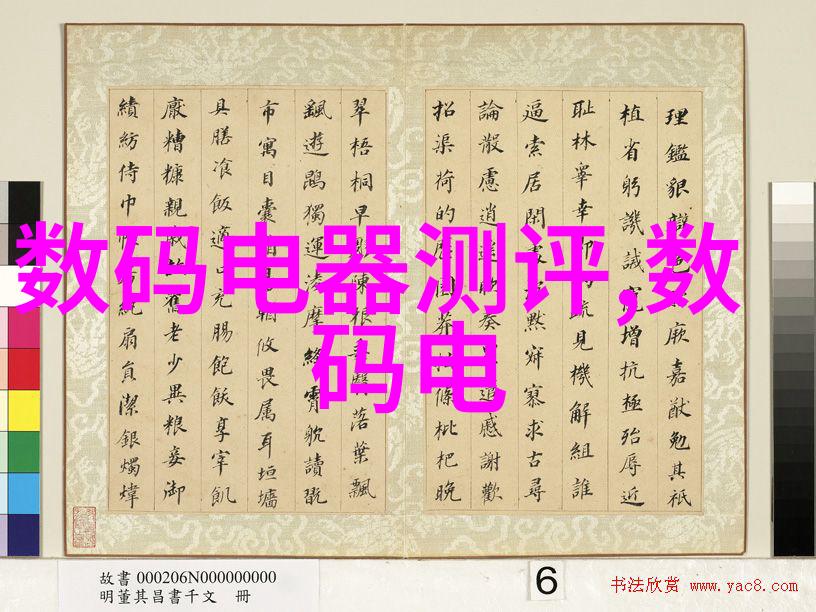 理鑑貌辯色厥嘉猷勉其祗
植省躬譏誡寵增抗極殆辱近
耻林睾幸即疏見機解組誰
逼索居閑處默寂寥求古尋
論散慮逍遥欣奏遣慼謝歡
招渠荷的歷園莽抽條枇杷晚
翠梧桐早彫陳根委翳落葉飄
颻遊鵾獨運凌摩絳霄躭讀翫
市寓目囊箱易輶攸畏属耳垣墻
具膳飡飯適口充腸飽飫享宰飢
厭糟糠親戚故舊老少異粮妾御
績紡侍巾帷房紈扇員潔銀燭煒
数码电器测评,数
码电
故書 000206N000000000
明董其昌書千文 冊
6
书法欣赏 www.yac8.com